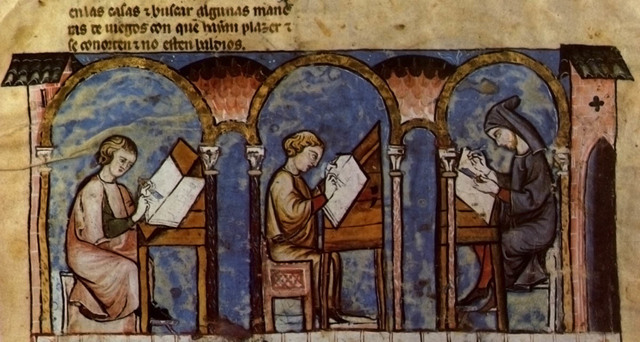 en las casas ⁊ buscar algunas mane
ras de iuegos con que hayan plazer ⁊
se conorten ⁊ no esten baldios.